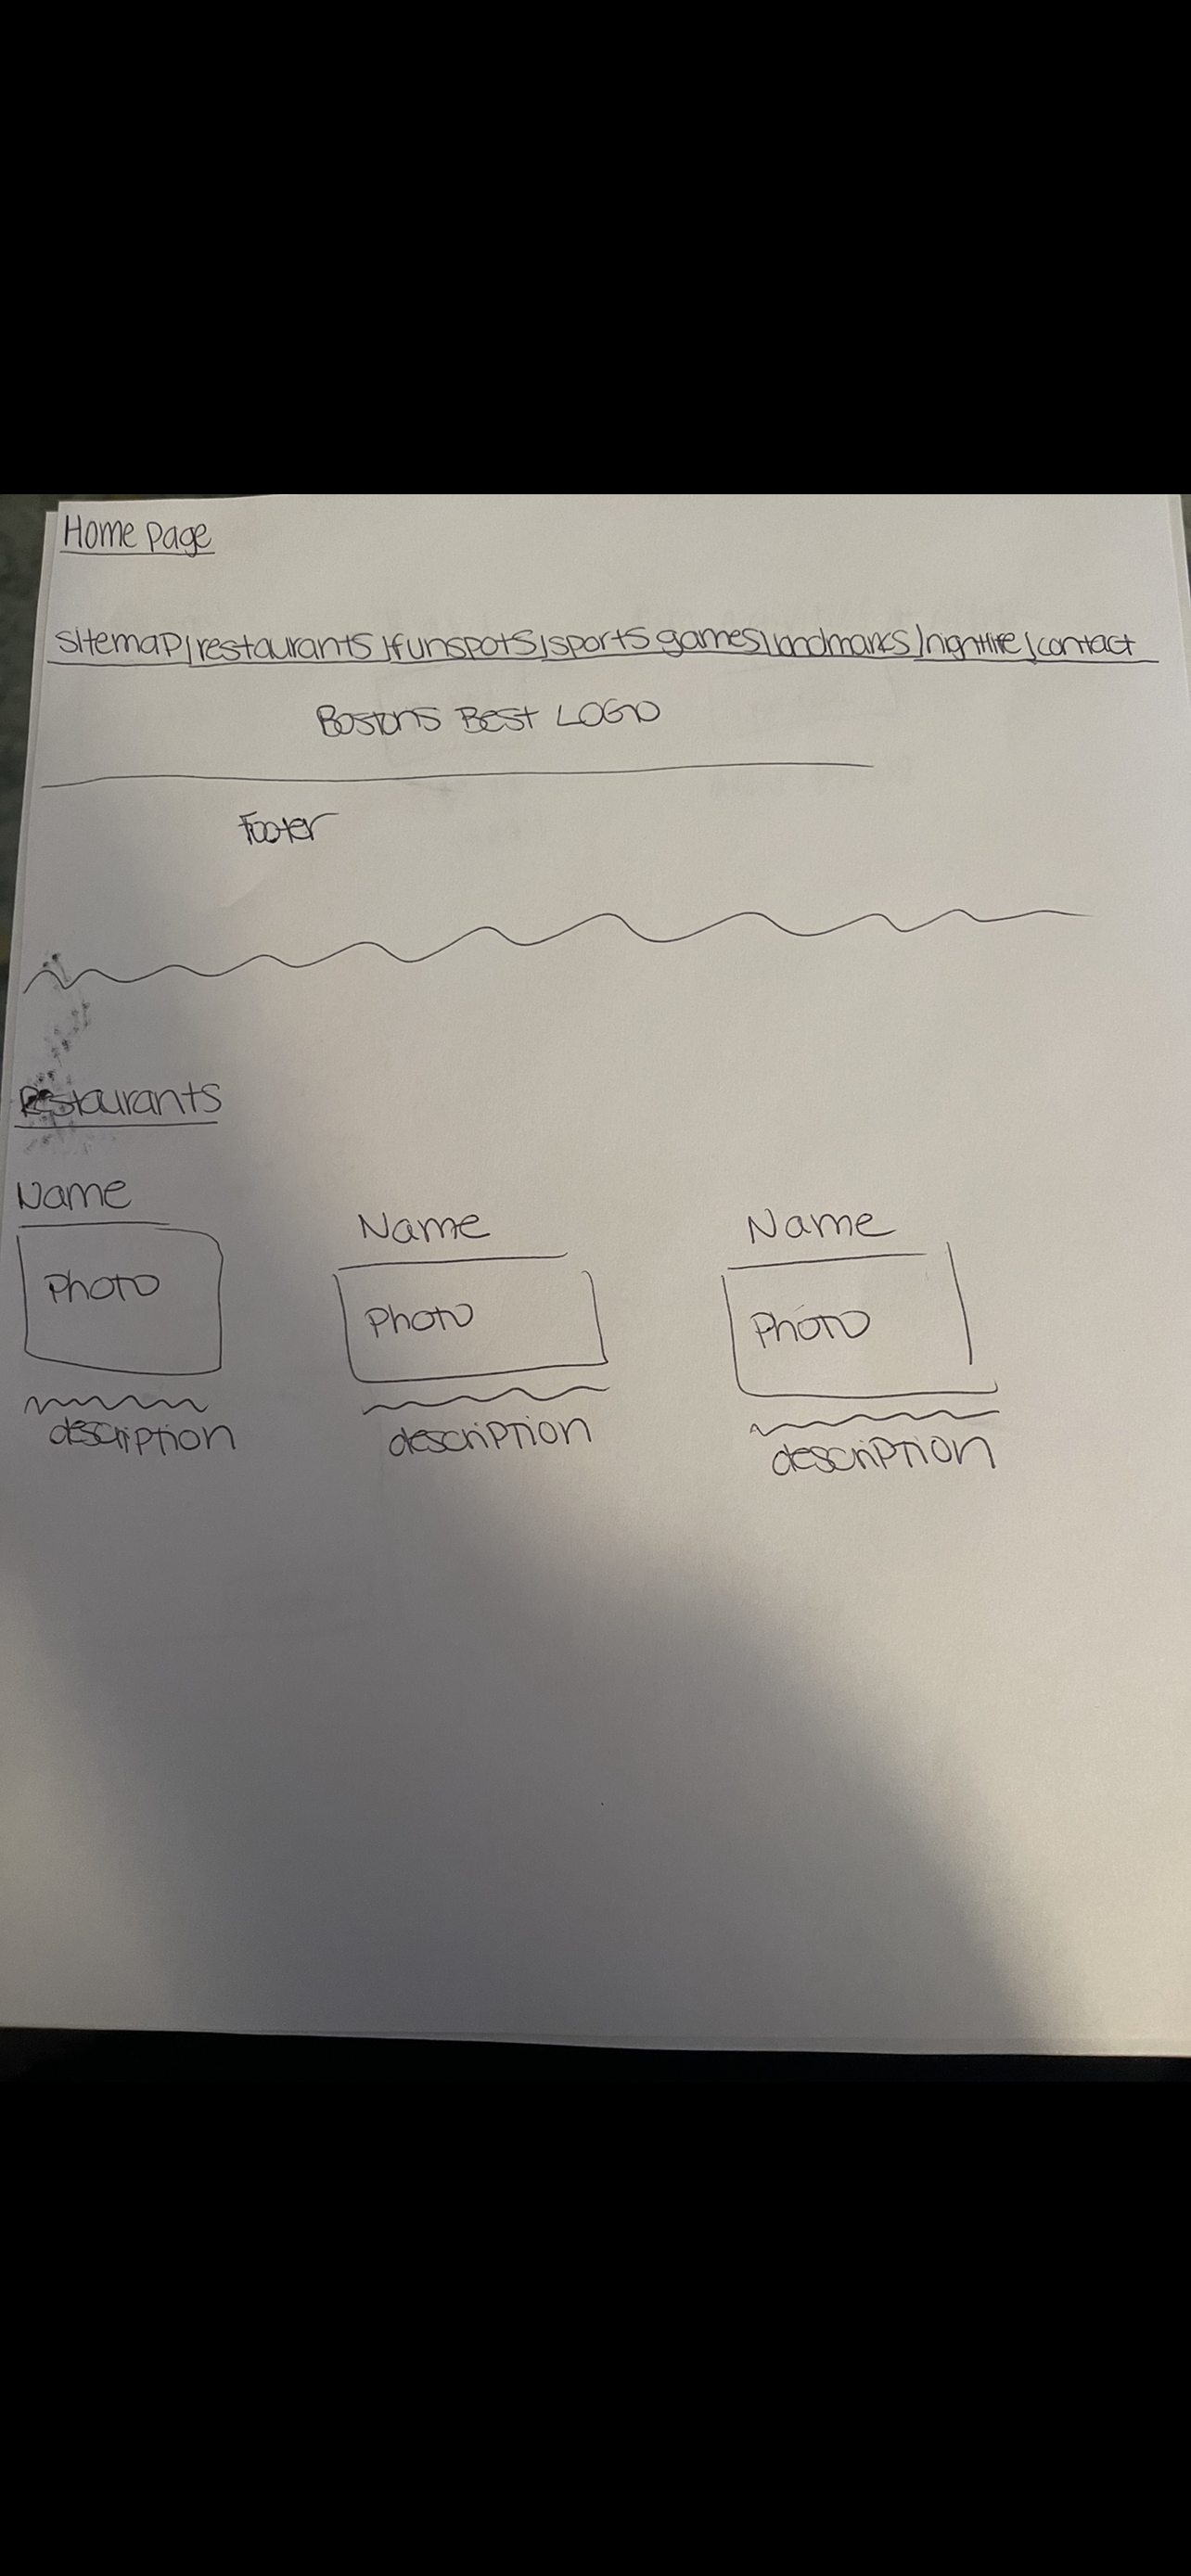 Home Page
sitemap/restaurants/funspots/sports games/landmarks/nightlife/contact
Bostons Best LOGO
Footer
Restaurants
Name Name Name
Photo Photo Photo
description description description